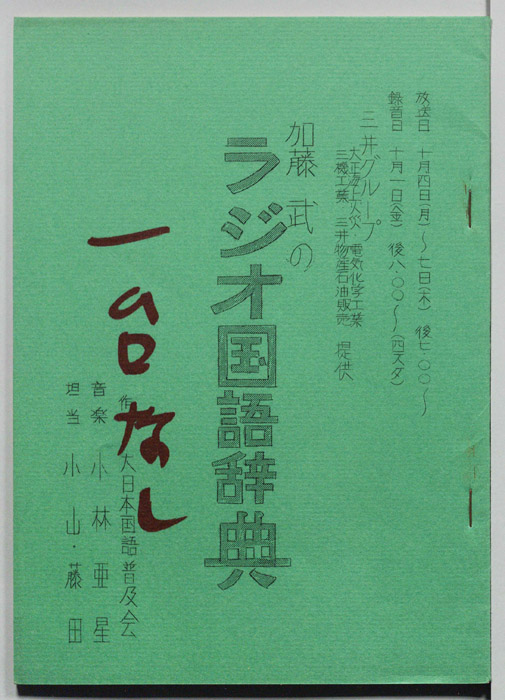 放送日 十月四日(月)～七日(木) 後七・〇〇～
録音日 十月一日(金) 後八・〇〇～(四スタ)
三井グループ
大正海上火災・電気化学工業
三機工業 三井物産石油販売 提供
加藤 武の
ラジオ国語辞典
作 大日本国語普及会
音楽 小林亜星
担当 小山・藤田
なし